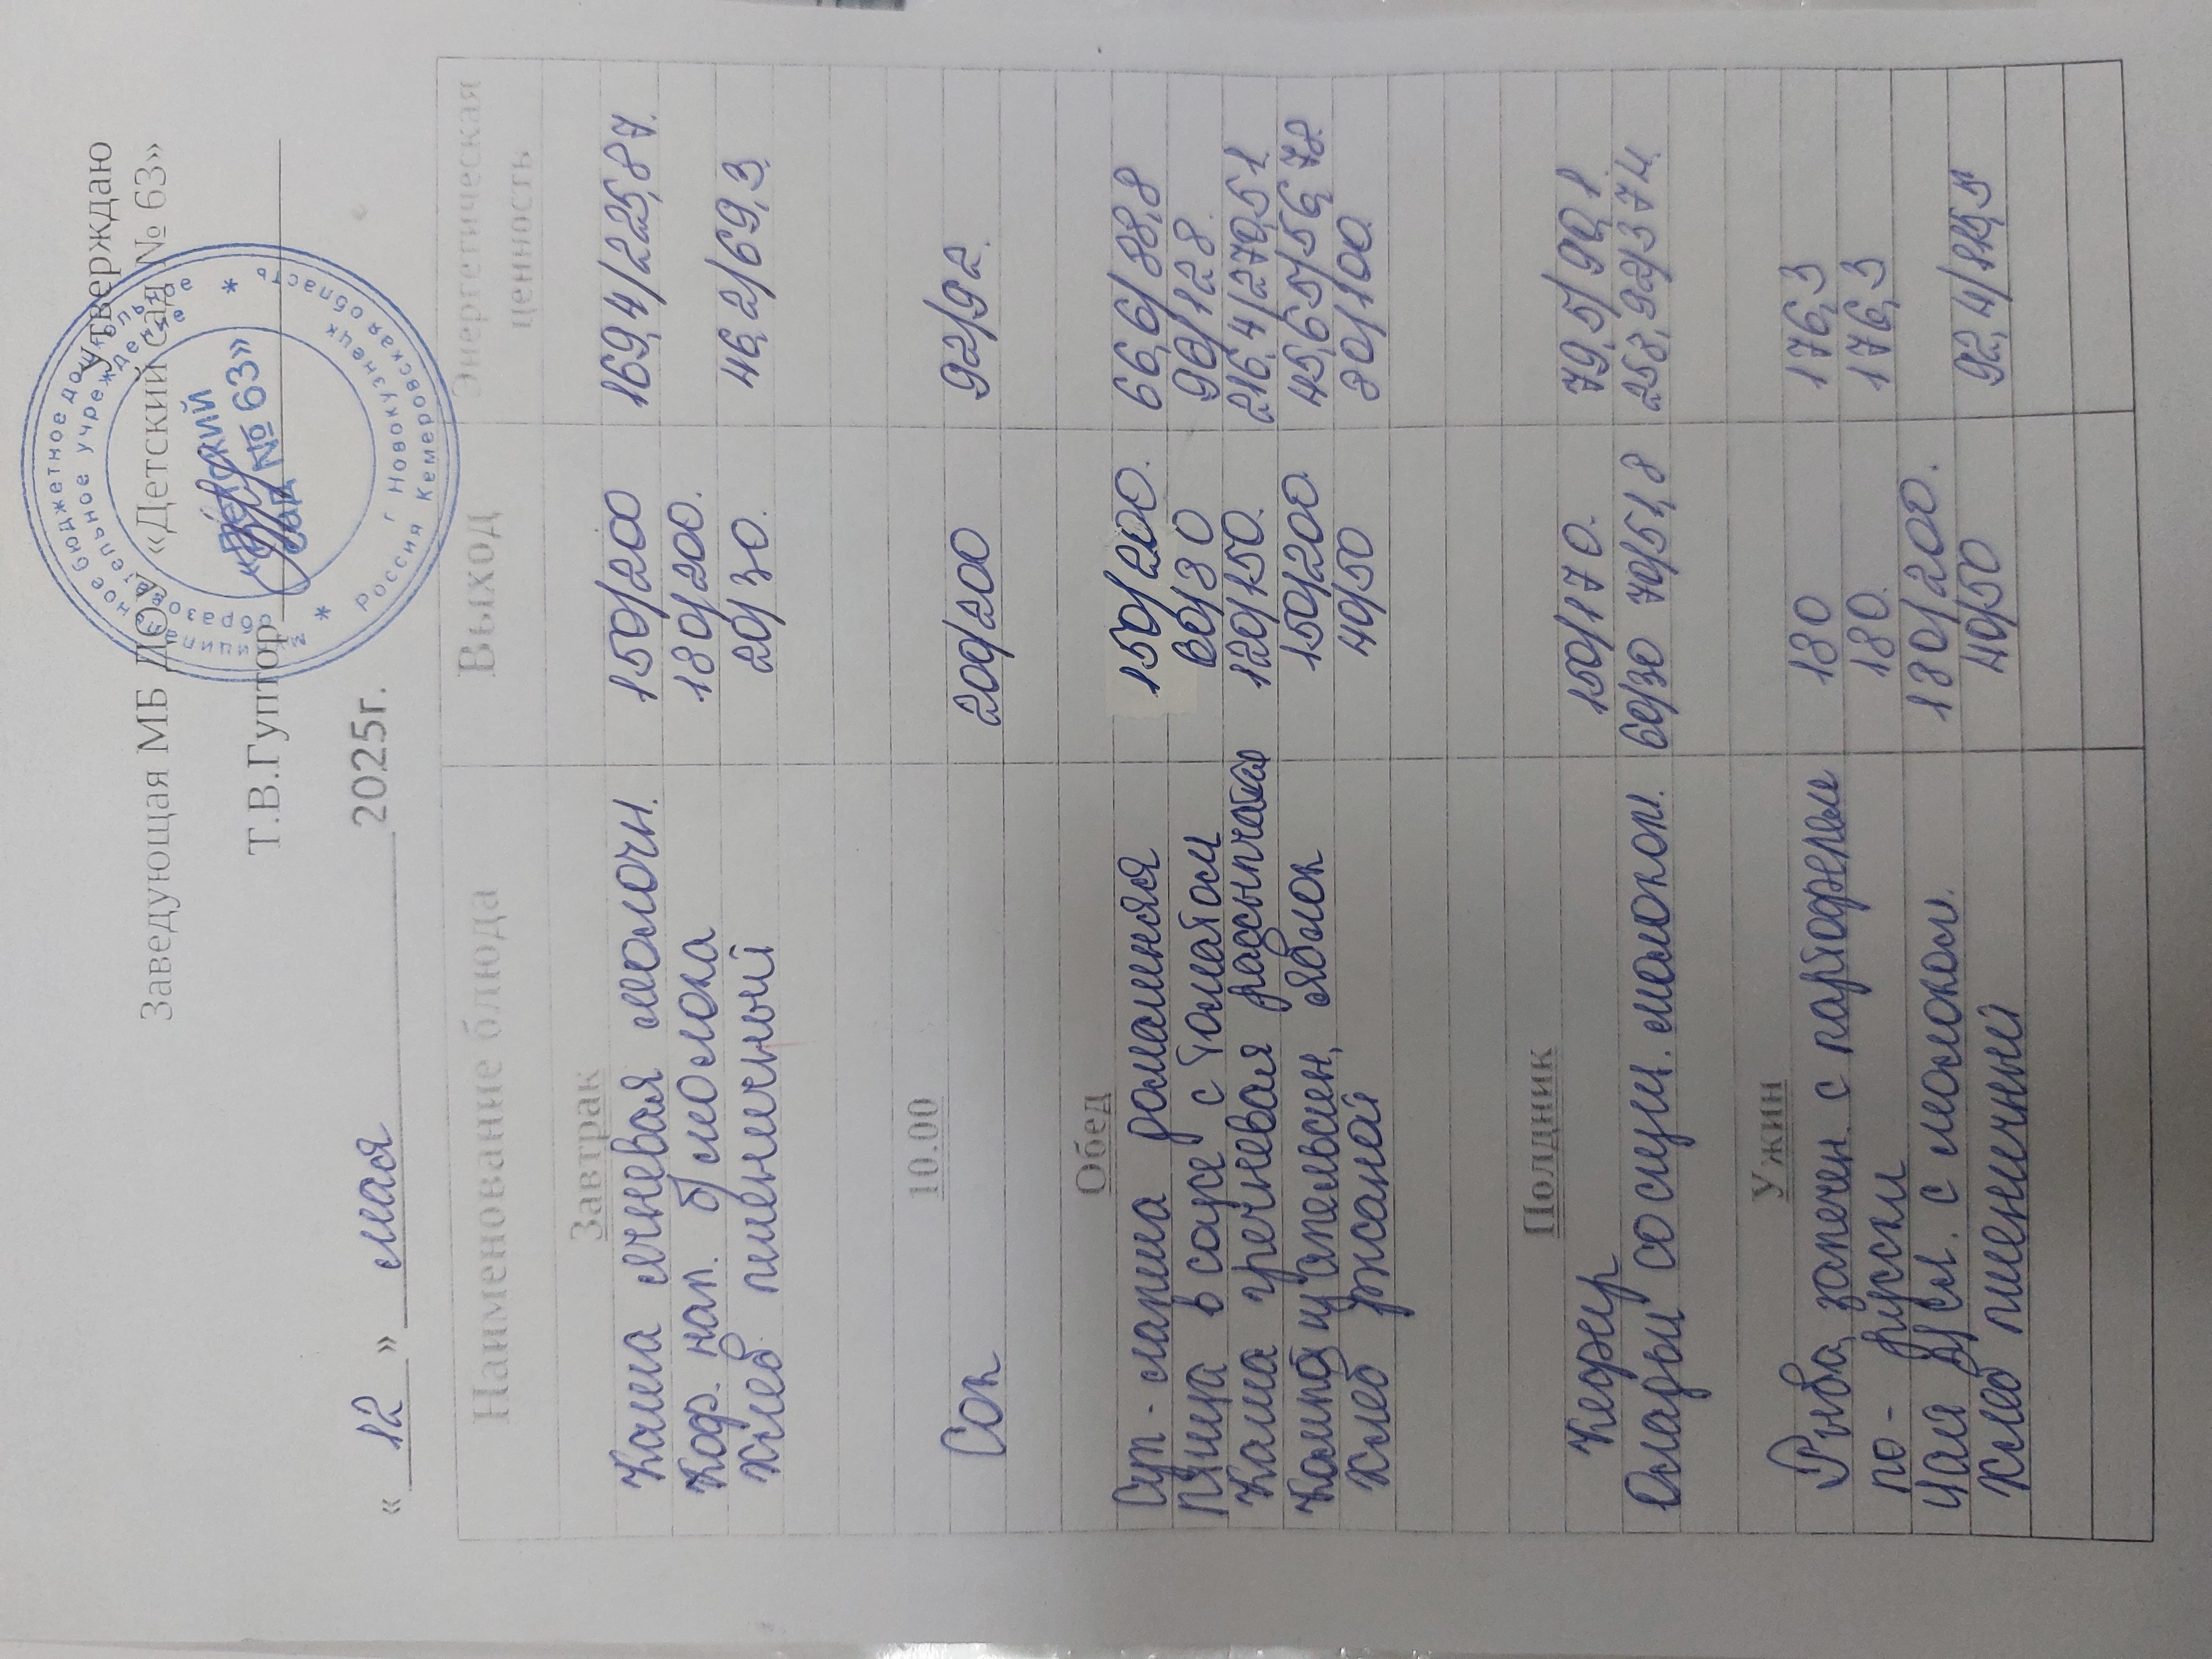 Утверждаю
Заведующая МБ ДОУ «Детский сад № 63»
Т.В.Гуптор
муниципальное бюджетное дошкольное
образовательное учреждение
«Детский
сад № 63»
г Новокузнецк
Россия Кемеровская область
« 12 » мая 2025г.
Наименование блюда Выход Энергетическая ценность
Завтрак
Каша ячневая молочн. 150/200 169,4/225,87.
Коф. нап. б/молока 180/200.
Хлеб пшеничный 20/30. 46,2/69,3.
10.00
Сок 200/200 92/92.
Обед
Суп-лапша домашняя 150/200. 66,6/88,8
Птица в соусе с томатом 80/80 90/128.
Каша гречневая рассыпчатая 120/150. 216,4/270,51.
Компот из апельсин, яблок 150/200. 45,65/56,78
Хлеб ржаной 40/50 80/100.
Полдник
Кефир 150/170. 79,5/90,1
Оладьи со сгущ. молоком. 60/30 70/51,8 258,92/374.
Ужин
Рыба, запечен. с картофелем 180 176,3
по-русски 180. 176,3
Чай с молоком. 180/200.
Хлеб пшеничный 40/50